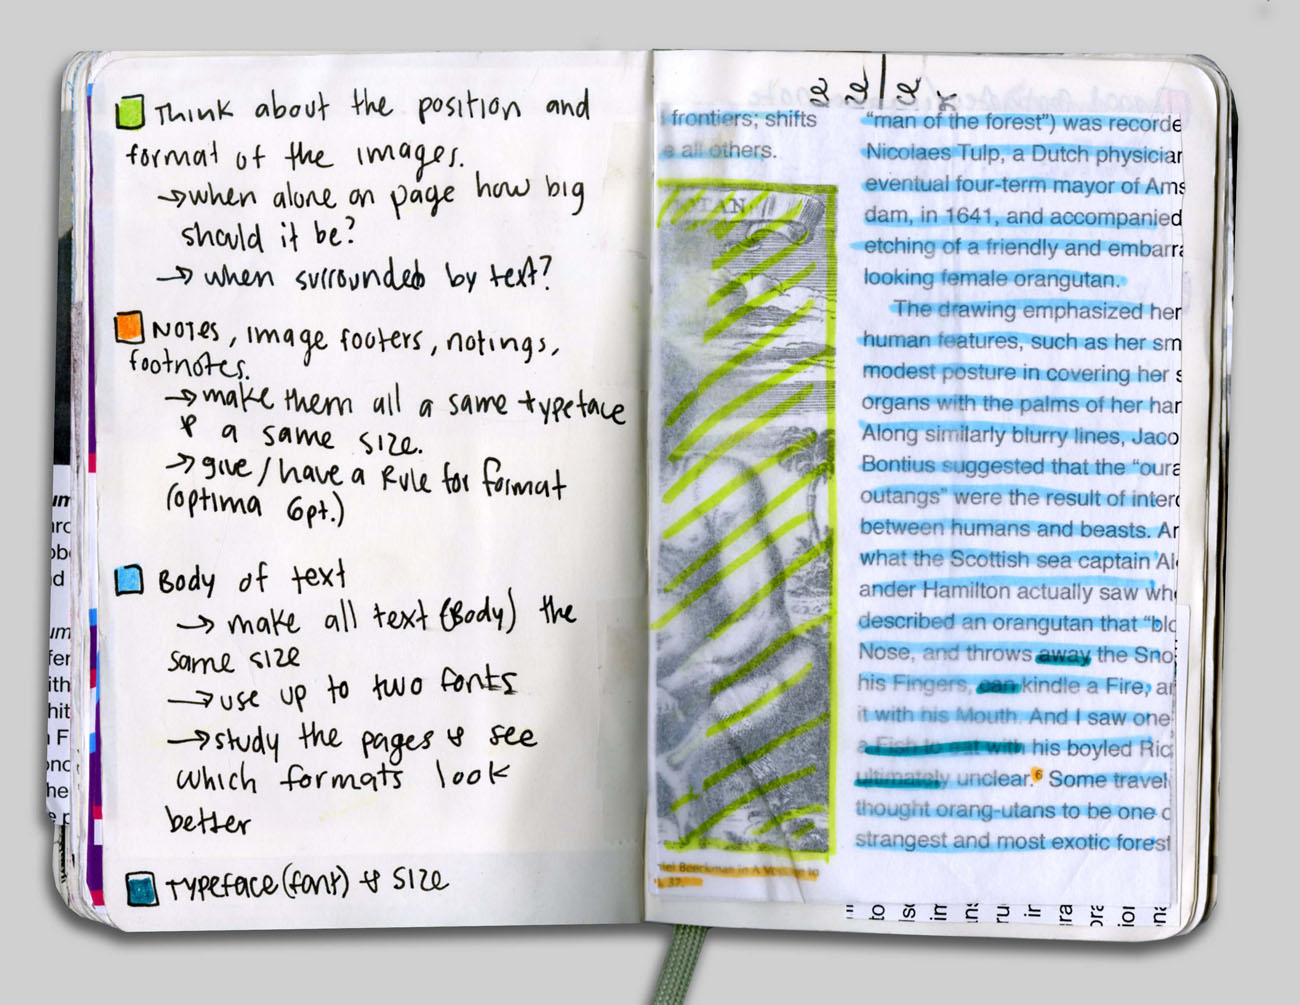 Think about the position and
format of the images.
→when alone on page how big
should it be?
→ when surrounded by text?
Notes, image footers, notings,
footnotes.
→make them all a same typeface
& a same size.
→give/have a Rule for format
(optima 6pt.)
Body of text
→ make all text (Body) the
same size
→use up to two fonts
→study the pages & see
which formats look
better
Typeface (font) & size
frontiers; shifts
e all others.
OTAN
"man of the forest") was recorde
Nicolaes Tulp, a Dutch physician
eventual four-term mayor of Ams
dam, in 1641, and accompanied
etching of a friendly and embarra
looking female orangutan.
The drawing emphasized her
human features, such as her sm
modest posture in covering her s
organs with the palms of her har
Along similarly blurry lines, Jaco
Bontius suggested that the "oura
outangs" were the result of interc
between humans and beasts. Ar
what the Scottish sea captain Al
ander Hamilton actually saw wh
described an orangutan that "blo
Nose, and throws away the Sno
his Fingers, can kindle a Fire, an
it with his Mouth. And I saw one
a Fish to eat with his boyled Ric
ultimately unclear.6 Some travel
thought orang-utans to be one o
strangest and most exotic forest
iel Beeckman in A Voyage to
37.